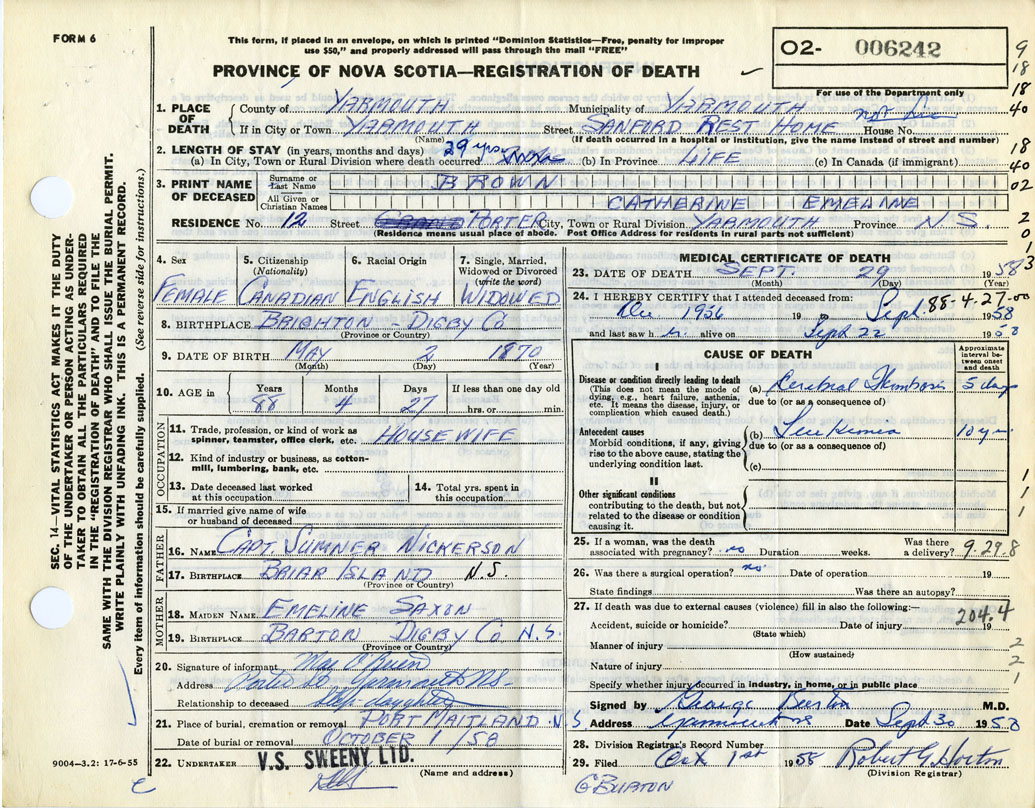 FORM 6
This form, if placed in an envelope, on which is printed "Dominion Statistics—Free, penalty for improper
use $50," and properly addressed will pass through the mail "FREE"
PROVINCE OF NOVA SCOTIA—REGISTRATION OF DEATH
02- 006242
For use of the Department only
9
18
18
40
18
40
02
2
0
13
1. PLACE OF DEATH
County of YARMOUTH Municipality of YARMOUTH
If in City or Town YARMOUTH Street SANFORD REST HOME House No.
(Name) (If death occurred in a hospital or institution, give the name instead of street and number)
2. LENGTH OF STAY (in years, months and days) 29 yrs
(a) In City, Town or Rural Division where death occurred (b) In Province LIFE (c) In Canada (if immigrant)
3. PRINT NAME OF DECEASED
Surname or Last Name BROWN
All Given or Christian Names CATHERINE EMELINE
RESIDENCE No. 12 Street PORTER City, Town or Rural Division YARMOUTH Province N.S.
(Residence means usual place of abode. Post Office Address for residents in rural parts not sufficient)
4. Sex
FEMALE
5. Citizenship
(Nationality)
CANADIAN
6. Racial Origin
ENGLISH
7. Single, Married,
Widowed or Divorced
(write the word)
WIDOWED
8. BIRTHPLACE BRIGHTON - DIGBY CO
(Province or Country)
9. DATE OF BIRTH MAY 2 1870
(Month) (Day) (Year)
10. AGE in
Years Months Days If less than one day old
88 4 27 hrs. or min.
OCCUPATION
11. Trade, profession, or kind of work as
spinner, teamster, office clerk, etc. HOUSEWIFE
12. Kind of industry or business, as cotton-
mill, lumbering, bank, etc.
13. Date deceased last worked
at this occupation
14. Total yrs. spent in
this occupation
15. If married give name of wife
or husband of deceased
FATHER
16. NAME CAPT. SUMNER NICKERSON
17. BIRTHPLACE BRIAR ISLAND N.S.
(Province or Country)
MOTHER
18. MAIDEN NAME EMELINE SAXON
19. BIRTHPLACE BARTON DIGBY CO N.S.
(Province or Country)
20. Signature of informant May O'Brien
Address Porter St Yarmouth NS
Relationship to deceased Step daughter
21. Place of burial, cremation or removal PORT MAITLAND N.S.
Date of burial or removal OCTOBER 1/58
22. UNDERTAKER V.S. SWEENY LTD.
(Name and address)
9004—3.2: 17-6-55
MEDICAL CERTIFICATE OF DEATH
23. DATE OF DEATH SEPT. 29 1958
(Month) (Day) (Year)
24. I HEREBY CERTIFY that I attended deceased from: 88-4-27-00
Dec 1956 19 to Sept. 1958
and last saw h alive on Sept 22 1958
CAUSE OF DEATH
Approximate
interval be-
tween onset
and death
I
Disease or condition directly leading to death
(This does not mean the mode of
dying, e.g., heart failure, asthenia,
etc. It means the disease, injury, or
complication which caused death.)
(a) Cerebral Thrombosis 5 days
due to (or as a consequence of)
Antecedent causes
Morbid conditions, if any, giving
rise to the above cause, stating the
underlying condition last.
(b) Leukemia 10 yrs
due to (or as a consequence of)
(c)
II
Other significant conditions
contributing to the death, but not
related to the disease or condition
causing it.
1
1
1
25. If a woman, was the death
associated with pregnancy? no Duration weeks. Was there
a delivery? 9.29.8
26. Was there a surgical operation? no Date of operation 19
State findings Was there an autopsy?
27. If death was due to external causes (violence) fill in also the following:—
204.4
Accident, suicide or homicide? Date of injury 19
(State which)
Manner of injury 2
(How sustained)
Nature of injury 2
1
Specify whether injury occurred in industry, in home, or in public place
Signed by George Burton M.D.
Address Yarmouth N.S. Date Sept 30 1958
28. Division Registrar's Record Number
29. Filed Oct 1st 1958 Robert G. Horton
(Division Registrar)
G BURTON
SEC. 14—VITAL STATISTICS ACT MAKES IT THE DUTY
OF THE UNDERTAKER OR PERSON ACTING AS UNDER-
TAKER TO OBTAIN ALL THE PARTICULARS REQUIRED
IN THE "REGISTRATION OF DEATH" AND TO FILE THE
SAME WITH THE DIVISION REGISTRAR WHO SHALL ISSUE THE BURIAL PERMIT.
WRITE PLAINLY WITH UNFADING INK. THIS IS A PERMANENT RECORD.
Every item of information should be carefully supplied. (See reverse side for instructions.)